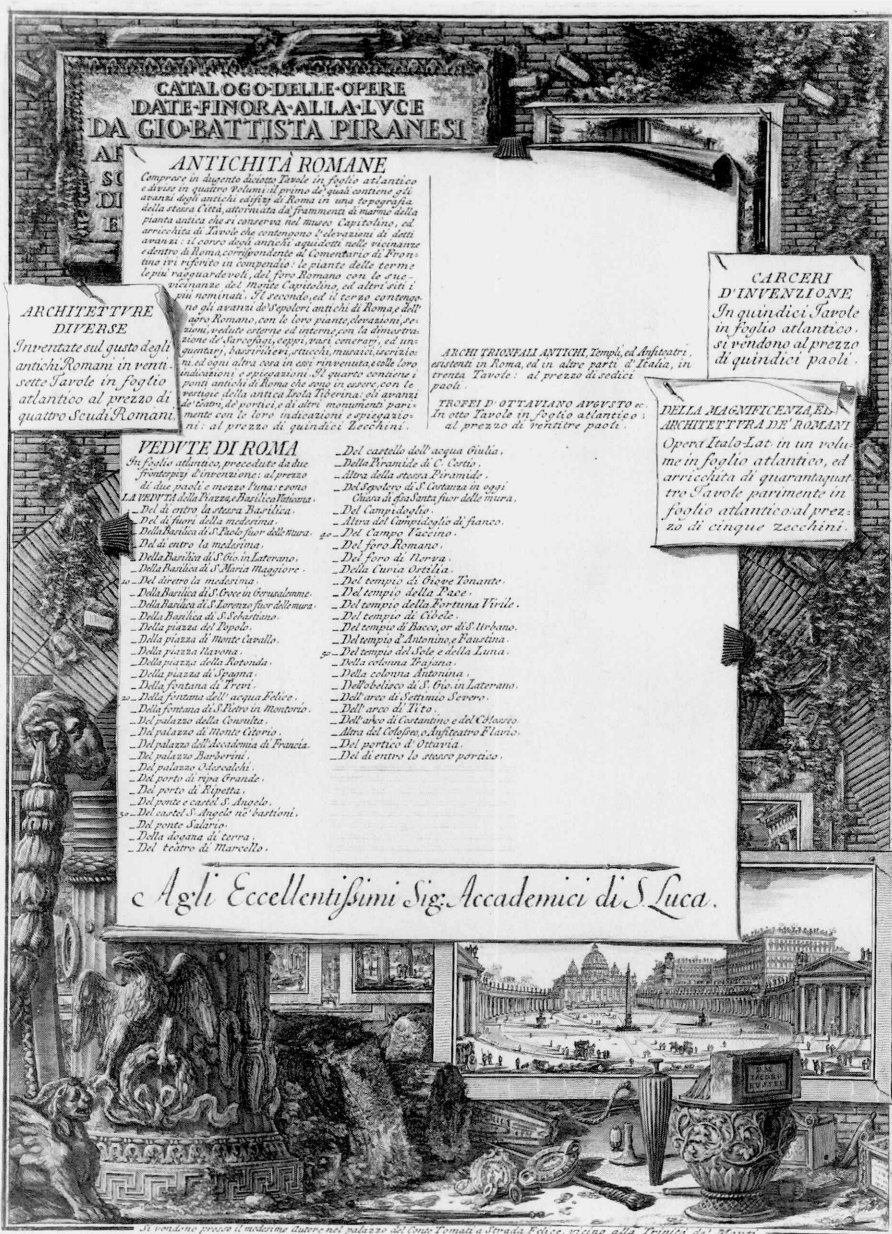 CATALOGO·DELLE·OPERE
DATE·FINORA·ALLA·LVCE
DA GIO·BATTISTA PIRANESI
ANTICHITÀ ROMANE
Comprese in dugento diciotto Tavole in foglio atlantico
e divise in quattro volumi: il primo de' quali contiene gli
avanzi degli antichi edifizj di Roma in una topografia
della stessa Città, attorniata da' frammenti di marmo della
pianta antica che si conserva nel museo Capitolino, ed
arricchita di Tavole che contengono l'elevazioni di detti
avanzi: il corso degli antichi aquidotti nelle vicinanze
e dentro di Roma, corrispondente al Comentario di Fron-
tino ivi riferito in compendio: le piante delle terme
le più ragguardevoli, del foro Romano con le sue
vicinanze del monte Capitolino, ed altri siti i
più nominati. Il secondo, ed il terzo contengo-
no gli avanzi de' Sepolcri antichi di Roma, e dell'
agro Romano, con le loro piante, elevazioni, se-
zioni, vedute esterne ed interne, con la dimostra-
zione de' Sarcofagi, ceppi, vasi cenerarj, ed un-
guentarj, bassirilievi, stucchi, musaici, iscrizio-
ni, ed ogni altra cosa in essi rinvenuta, colle loro
indicazioni e spiegazioni. Il quarto contiene i
ponti antichi di Roma che sono in essere, con le
vestigie della antica Isola Tiberina: gli avanzi
de' teatri, de' portici, e di altri monumenti pari-
mente con le loro indicazioni e spiegazio-
ni: al prezzo di quindici Zecchini.
ARCHI TRIONFALI ANTICHI, Templi, ed Anfiteatri,
esistenti in Roma, ed in altre parti d'Italia, in
trenta Tavole: al prezzo di sedici
paoli.
TROFEI D'OTTAVIANO AVGVSTO &c.
In otto Tavole in foglio atlantico:
al prezzo di ventitre paoli.
ARCHITETTVRE
DIVERSE
Inventate sul gusto degli
antichi Romani in venti-
sette Tavole in foglio
atlantico al prezzo di
quattro Scudi Romani.
CARCERI
D'INVENZIONE
In quindici Tavole
in foglio atlantico.
si vendono al prezzo
di quindici paoli.
DELLA MAGNIFICENZA, ED
ARCHITETTVRA DE' ROMANI
Opera Italo-Lat: in un volu-
me in foglio atlantico, ed
arricchita di quarantaquat-
tro Tavole parimente in
foglio atlantico al prez-
zo di cinque zecchini.
VEDUTE DI ROMA
In foglio atlantico, precedute da due
frontespizj d'invenzione: al prezzo
di due paoli e mezzo l'una: e sono
LA VEDUTA della Piazza, e Basilica Vaticana.
_ Del di entro la stessa Basilica.
_ Del di fuori della medesima.
_ Della Basilica di S. Paolo fuor delle mura.
_ Del di entro la medesima.
_ Della Basilica di S. Gio. in Laterano.
_ Della Basilica di S. Maria Maggiore.
10 _ Del diretro la medesima.
_ Della Basilica di S. Croce in Gerusalemme.
_ Della Basilica di S. Lorenzo fuor delle mura.
_ Della Basilica di S. Sebastiano.
_ Della piazza del Popolo.
_ Della piazza di Monte Cavallo.
_ Della piazza Navona.
_ Della piazza della Rotonda.
_ Della piazza di Spagna.
_ Della fontana di Trevi.
20 _ Della fontana dell'acqua Felice.
_ Della fontana di S. Pietro in Montorio.
_ Del palazzo della Consulta.
_ Del palazzo di Monte Citorio.
_ Del palazzo dell'Accademia di Francia.
_ Del palazzo Barberini.
_ Del palazzo Odescalchi.
_ Del porto di ripa Grande.
_ Del porto di Ripetta.
_ Del ponte e castel S. Angelo.
30 _ Del castel S. Angelo ne' bastioni.
_ Del ponte Salario.
_ Della dogana di terra.
_ Del teatro di Marcello.
_ Del castello dell'acqua Giulia.
_ Della Piramide di C. Cestio.
_ Altra della stessa Piramide.
_ Del Sepolcro di S. Costanza in oggi
Chiesa di essa Santa fuor delle mura.
_ Del Campidoglio.
_ Altra del Campidoglio di fianco.
40 _ Del Campo Vaccino.
_ Del foro Romano.
_ Del foro di Nerva.
_ Della Curia Ostilia.
_ Del tempio di Giove Tonante.
_ Del tempio della Pace.
_ Del tempio della Fortuna Virile.
_ Del tempio di Cibele.
_ Del tempio di Bacco, or di S. Urbano.
_ Del tempio d'Antonino, e Faustina.
50 _ Del tempio del Sole e della Luna.
_ Della colonna Trajana.
_ Della colonna Antonina.
_ Dell'obelisco di S. Gio. in Laterano.
_ Dell'arco di Settimio Severo.
_ Dell'arco di Tito.
_ Dell'arco di Costantino e del Colosseo.
_ Altra del Colosseo, o Anfiteatro Flavio.
_ Del portico d'Ottavia.
_ Del di entro lo stesso portico.
Agli Eccellentissimi Sig: Accademici di S. Luca.
Si vendono presso il medesimo Autore nel palazzo del Conte Tomati a Strada Felice, vicino alla Trinità de' Monti